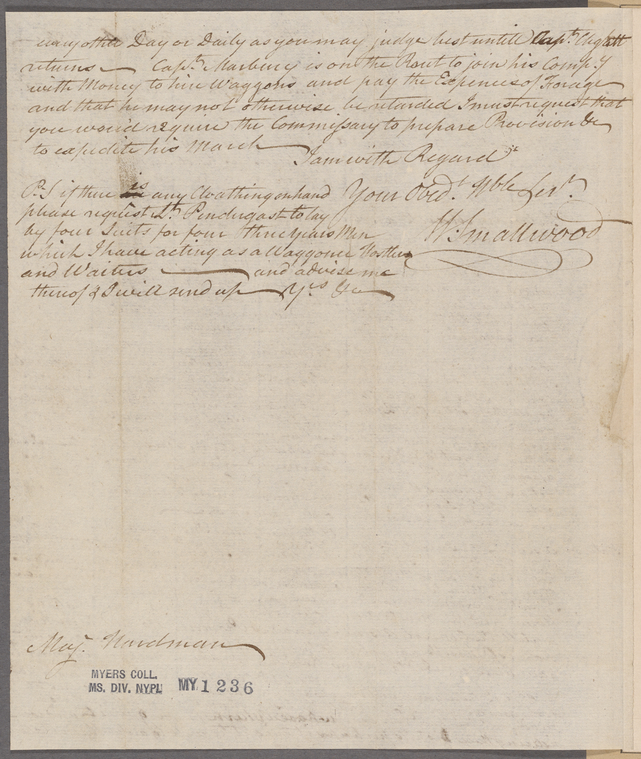 every other Day or Daily as you may judge best until Capt.
returns — Capt. Marbury is on the Rout to join his Comp.y
with Money to hire Waggons and pay the Expences of Forage
and that he may not otherwise be retarded I must request that
you would require the Commissary to prepare Provision &c
to expedite his March
I am with Regard
Your Obed.t Hble Serv.t
W Smallwood
P.S if there is any Cloathing on hand
please request Lt. Pindergast to lay
by four Suits for four three Years Men
which I have acting as a Waggoner Hostler
and Waiters — and advise me
thereof & I will send up — Y.rs &c
Maj.r Hardman
MYERS COLL.
MS. DIV. NYPL MY 1236